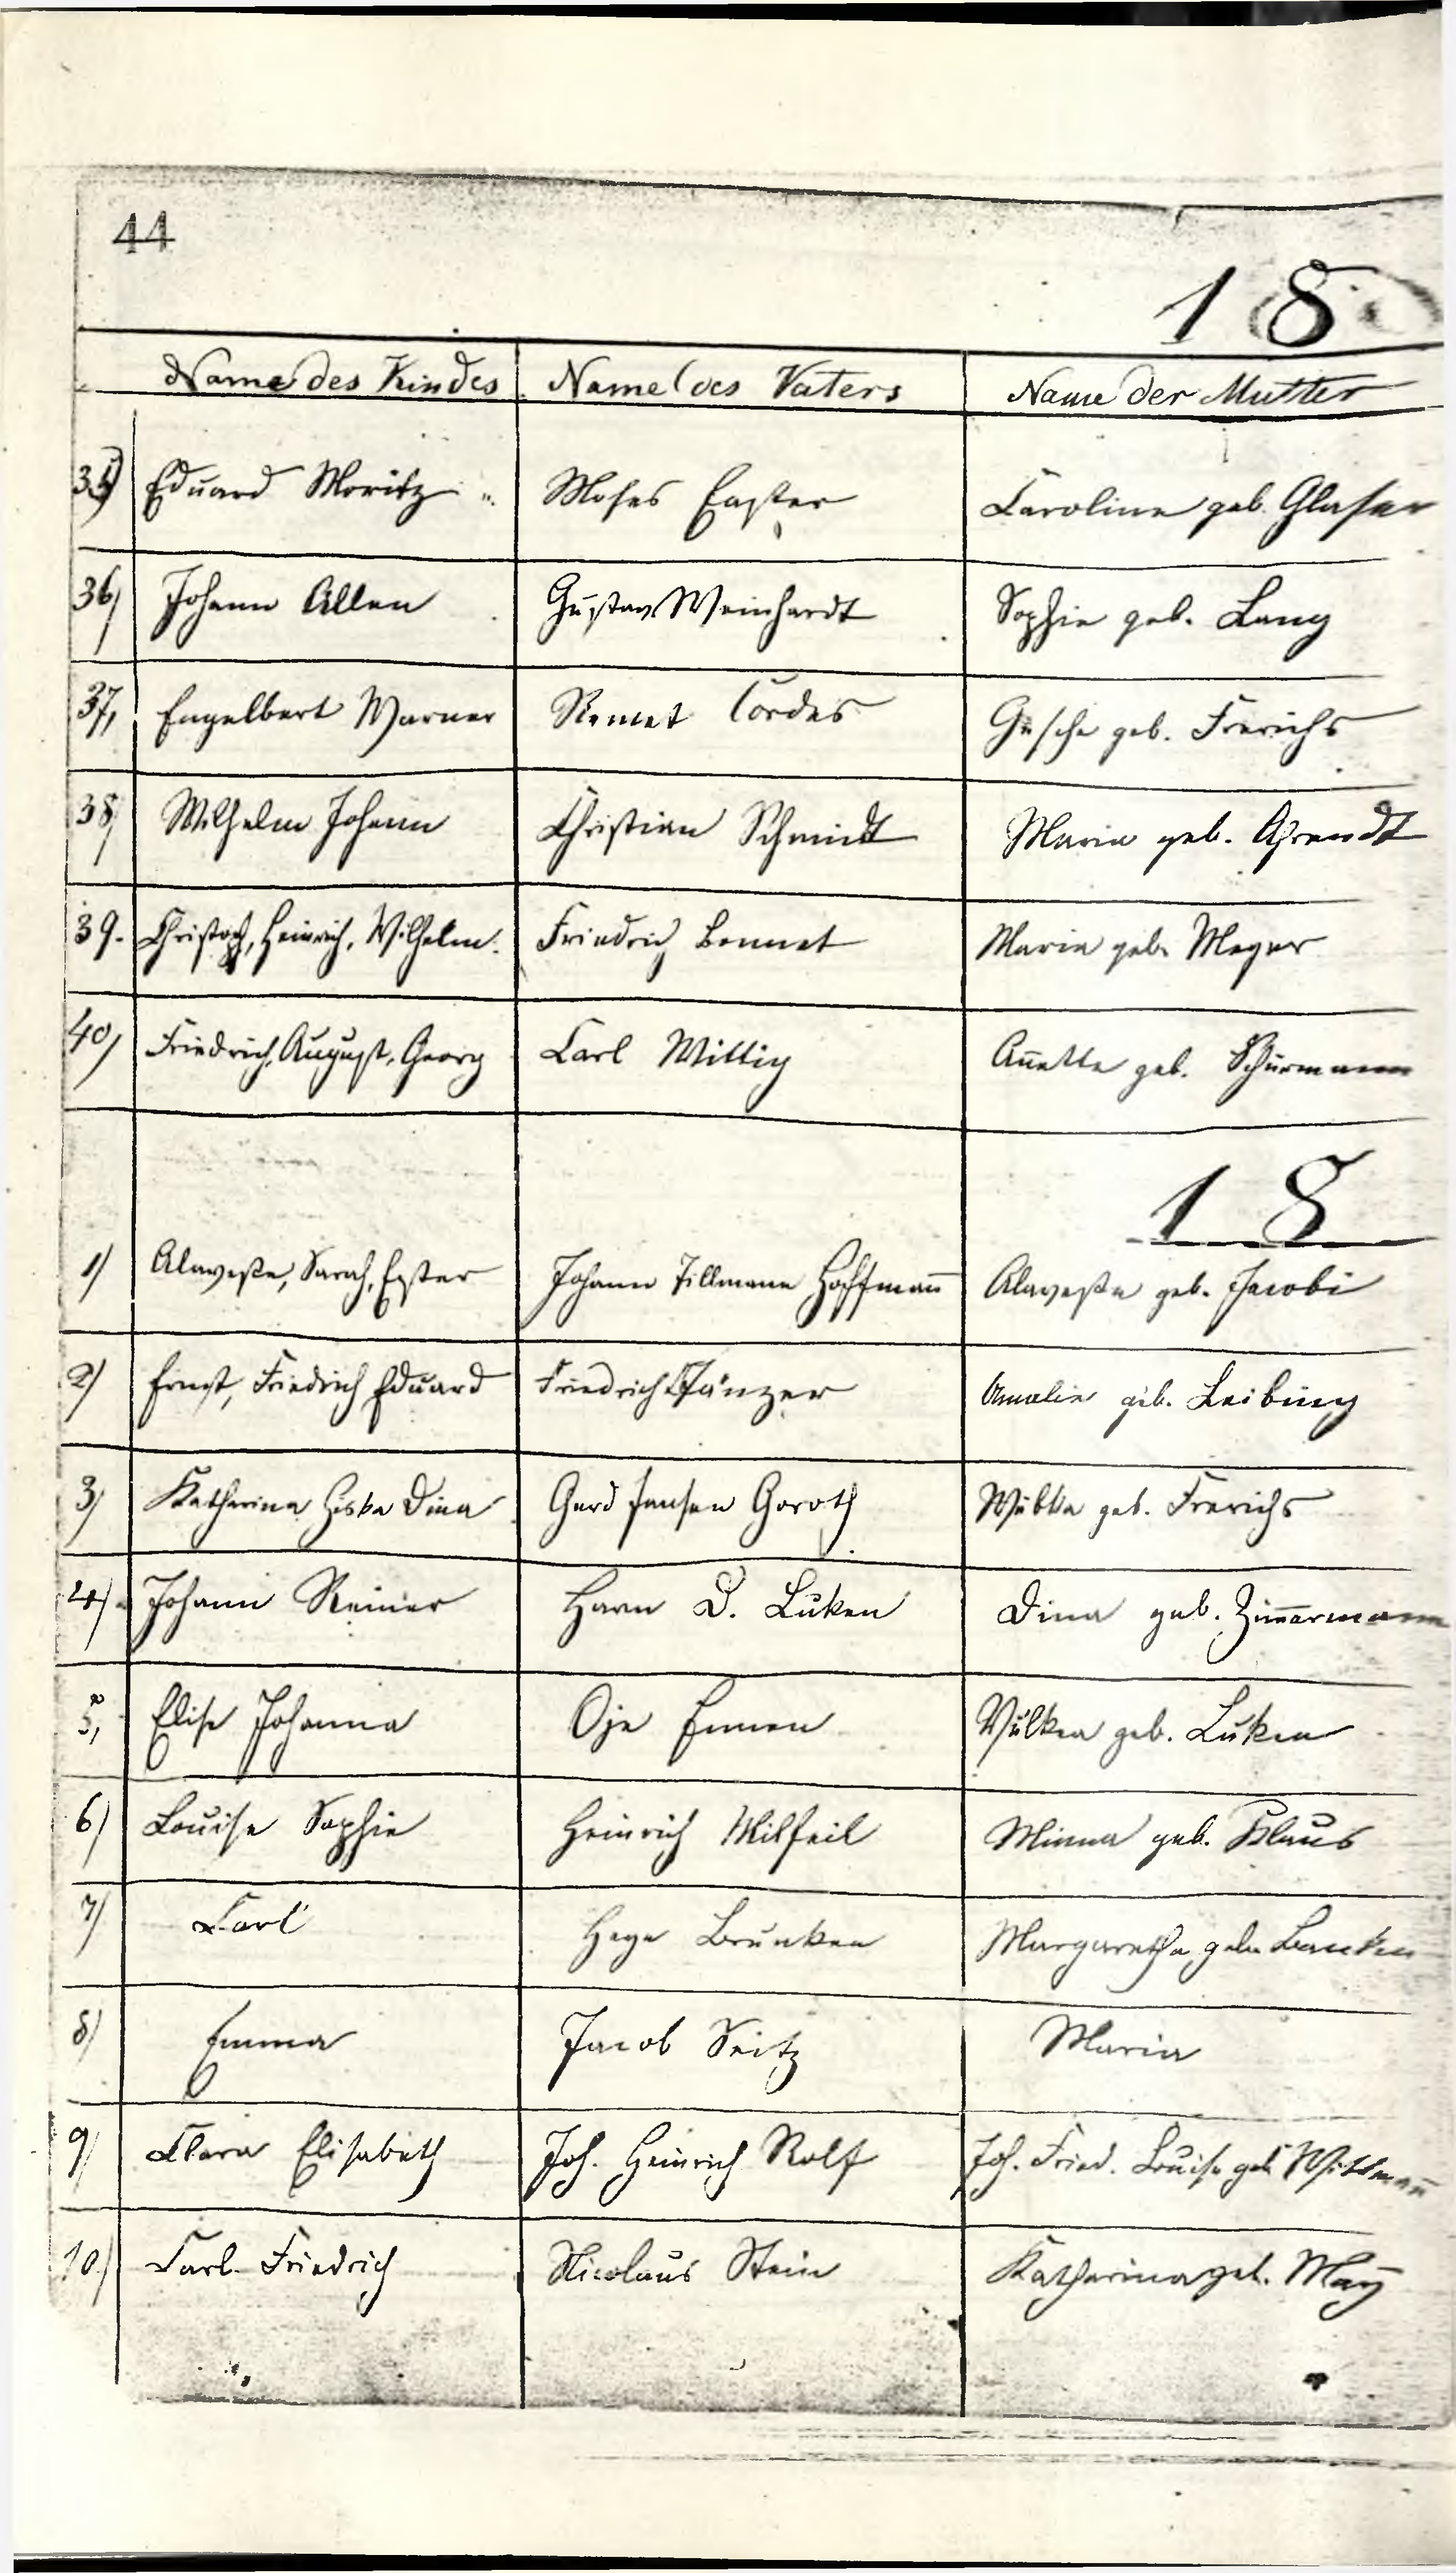 44
18
Name des Kindes Name des Vaters Name der Mutter
35) Eduard Moritz Moses Easter Caroline geb. Glaser
36) Johann Allen Gustav Weinhardt Sophie geb. Lang
37, Engelbert Warner Remet Cordes Gesche geb. Frerichs
38) Wilhelm Johann Christian Schmidt Maria geb. Ahrendt
39. Christoph, Heinrich, Wilhelm. Friedrich Bennet Maria geb. Meyer
40) Friedrich, August, Georg Carl Wittig Anette geb. Schürmann
18
1) Sarah, Ester Johann Tillmann Hoffmann geb. Jacobi
2) Ernst, Friedrich Eduard Friedrich Tänzer Amalie geb. Leibing
3) Katharina Hiska Dina Gerd Jansen Goroth Wübka geb. Frerichs
4) Johann Reiner Harm D. Luken Dina geb. Zimmermann
5, Elise Johanna Oje Emmen geb. Luken
6) Louise Sophie Heinrich Milfeil Minna geb. Klaus
7) Carl Heye Brunken Margaretha geb.
8) Emma Jacob Seitz Maria
9) Clara Elisabeth Joh. Heinrich Rolf Joh. Fried. Louise geb.
10) Carl Friedrich Nicolaus Stein Katharina geb. May